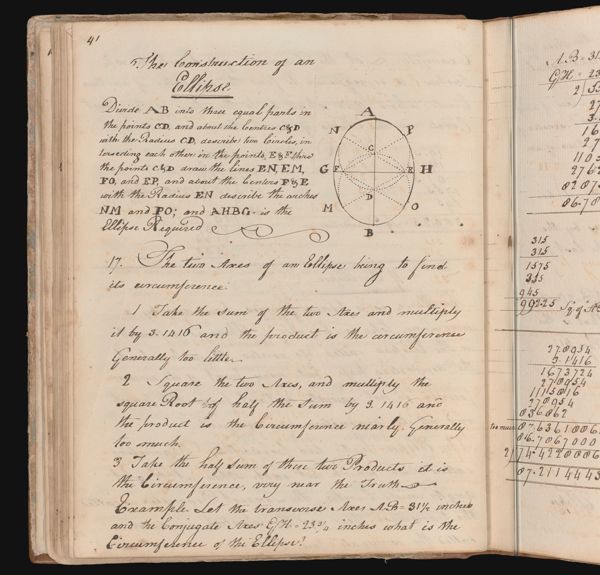 41
The Construction of an
Ellipse
Divide AB into three equal parts in
the points C.D, and about the Centres C&D
with the Radius CD, describe two Circles, in
terseeding each other in the points, E&F thro
the points C&D draw the lines EN, EM,
FO, and FP, and about the Centers F&E
with the Radius EN describe the arches
NM and PO; and AHBG is the
Ellipse Required
A
N
P
C
G
F
E
H
D
M
O
B
17. The two Axes of an Ellipse being to find
its circumference.
1 Take the sum of the two Axes and multiply
it by 3.1416 and the product is the circumference
Generally too little
2 Square the two Axes, and multiply the
square Root of half the Sum by 3.1416 and
the product is the Circumference nearly. Generally
too much.
3 Take the half sum of these two Products it is
the Circumference, very near the Truth
Example. Let the transverse Axes AB = 31½ inches
and the Conjugate Axes GH = 23¾ inches what is the
Circumference of the Ellipse?
315
315
1575
315
945
992.25
278954
3.1416
1673724
278954
1115816
278954
836862
too much 87.6361886